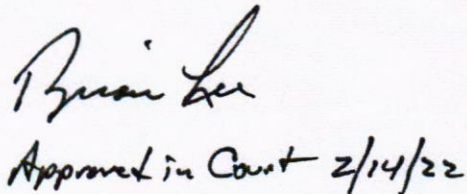 Brian Lee
Approved in Court 2/14/22